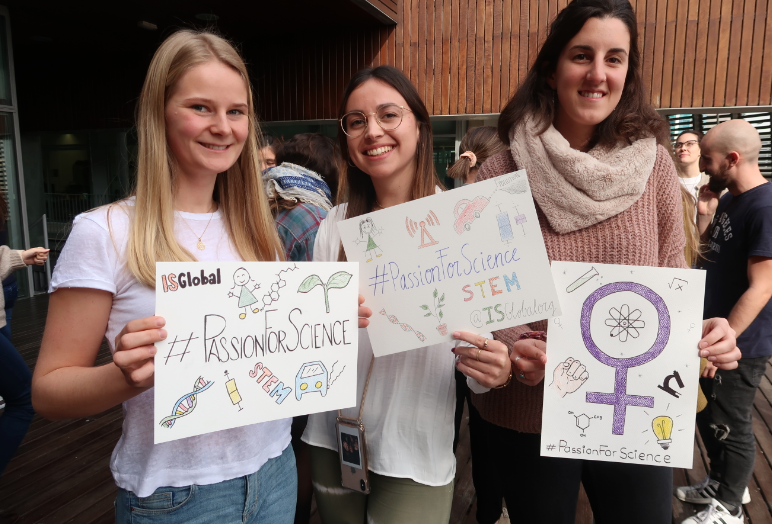 ISGlobal
#PASSIONFORSCIENCE
STEM
#PassionForScience
STEM
@ISGlobalorg
n
#PassionForScience